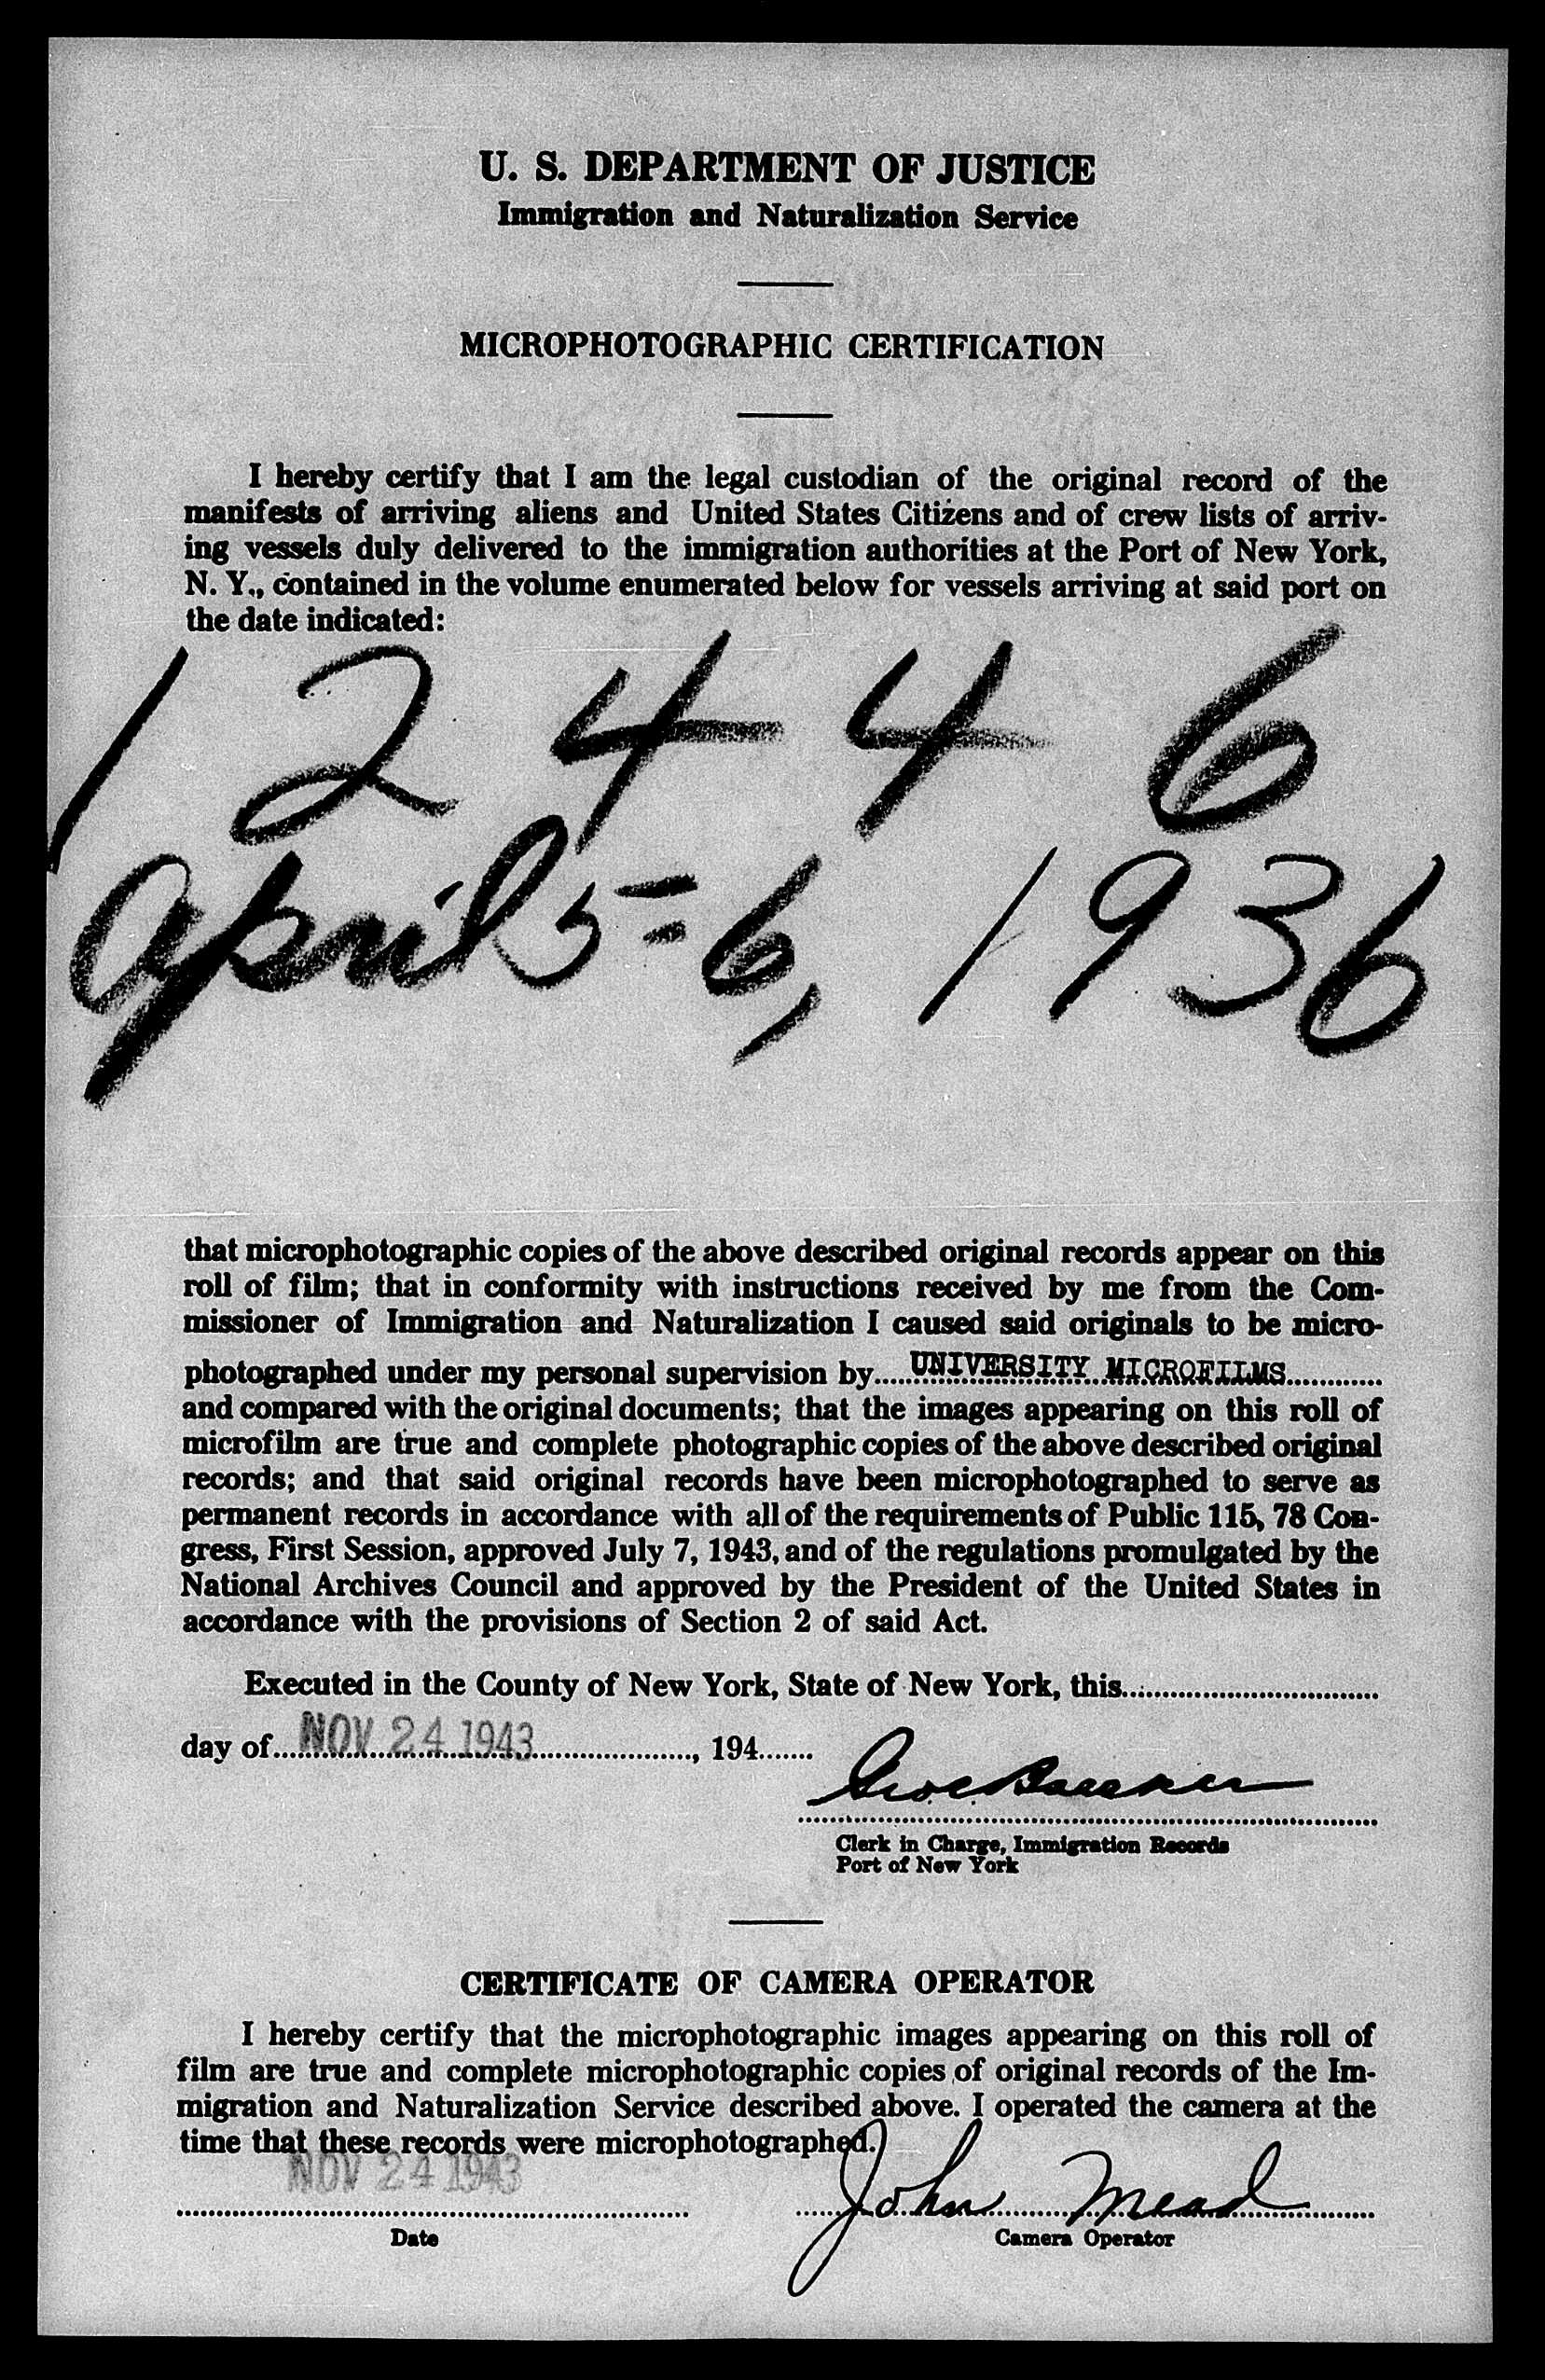 U. S. DEPARTMENT OF JUSTICE
Immigration and Naturalization Service
MICROPHOTOGRAPHIC CERTIFICATION
I hereby certify that I am the legal custodian of the original record of the
manifests of arriving aliens and United States Citizens and of crew lists of arriv-
ing vessels duly delivered to the immigration authorities at the Port of New York,
N. Y., contained in the volume enumerated below for vessels arriving at said port on
the date indicated:
12446
April 5=6, 1936
that microphotographic copies of the above described original records appear on this
roll of film; that in conformity with instructions received by me from the Com-
missioner of Immigration and Naturalization I caused said originals to be micro-
photographed under my personal supervision by UNIVERSITY MICROFILMS
and compared with the original documents; that the images appearing on this roll of
microfilm are true and complete photographic copies of the above described original
records; and that said original records have been microphotographed to serve as
permanent records in accordance with all of the requirements of Public 115, 78 Con-
gress, First Session, approved July 7, 1943, and of the regulations promulgated by the
National Archives Council and approved by the President of the United States in
accordance with the provisions of Section 2 of said Act.
Executed in the County of New York, State of New York, this
day of NOV 24 1943, 194
Clerk in Charge, Immigration Records
Port of New York
CERTIFICATE OF CAMERA OPERATOR
I hereby certify that the microphotographic images appearing on this roll of
film are true and complete microphotographic copies of original records of the Im-
migration and Naturalization Service described above. I operated the camera at the
time that these records were microphotographed.
NOV 24 1943 John Mead
Date Camera Operator